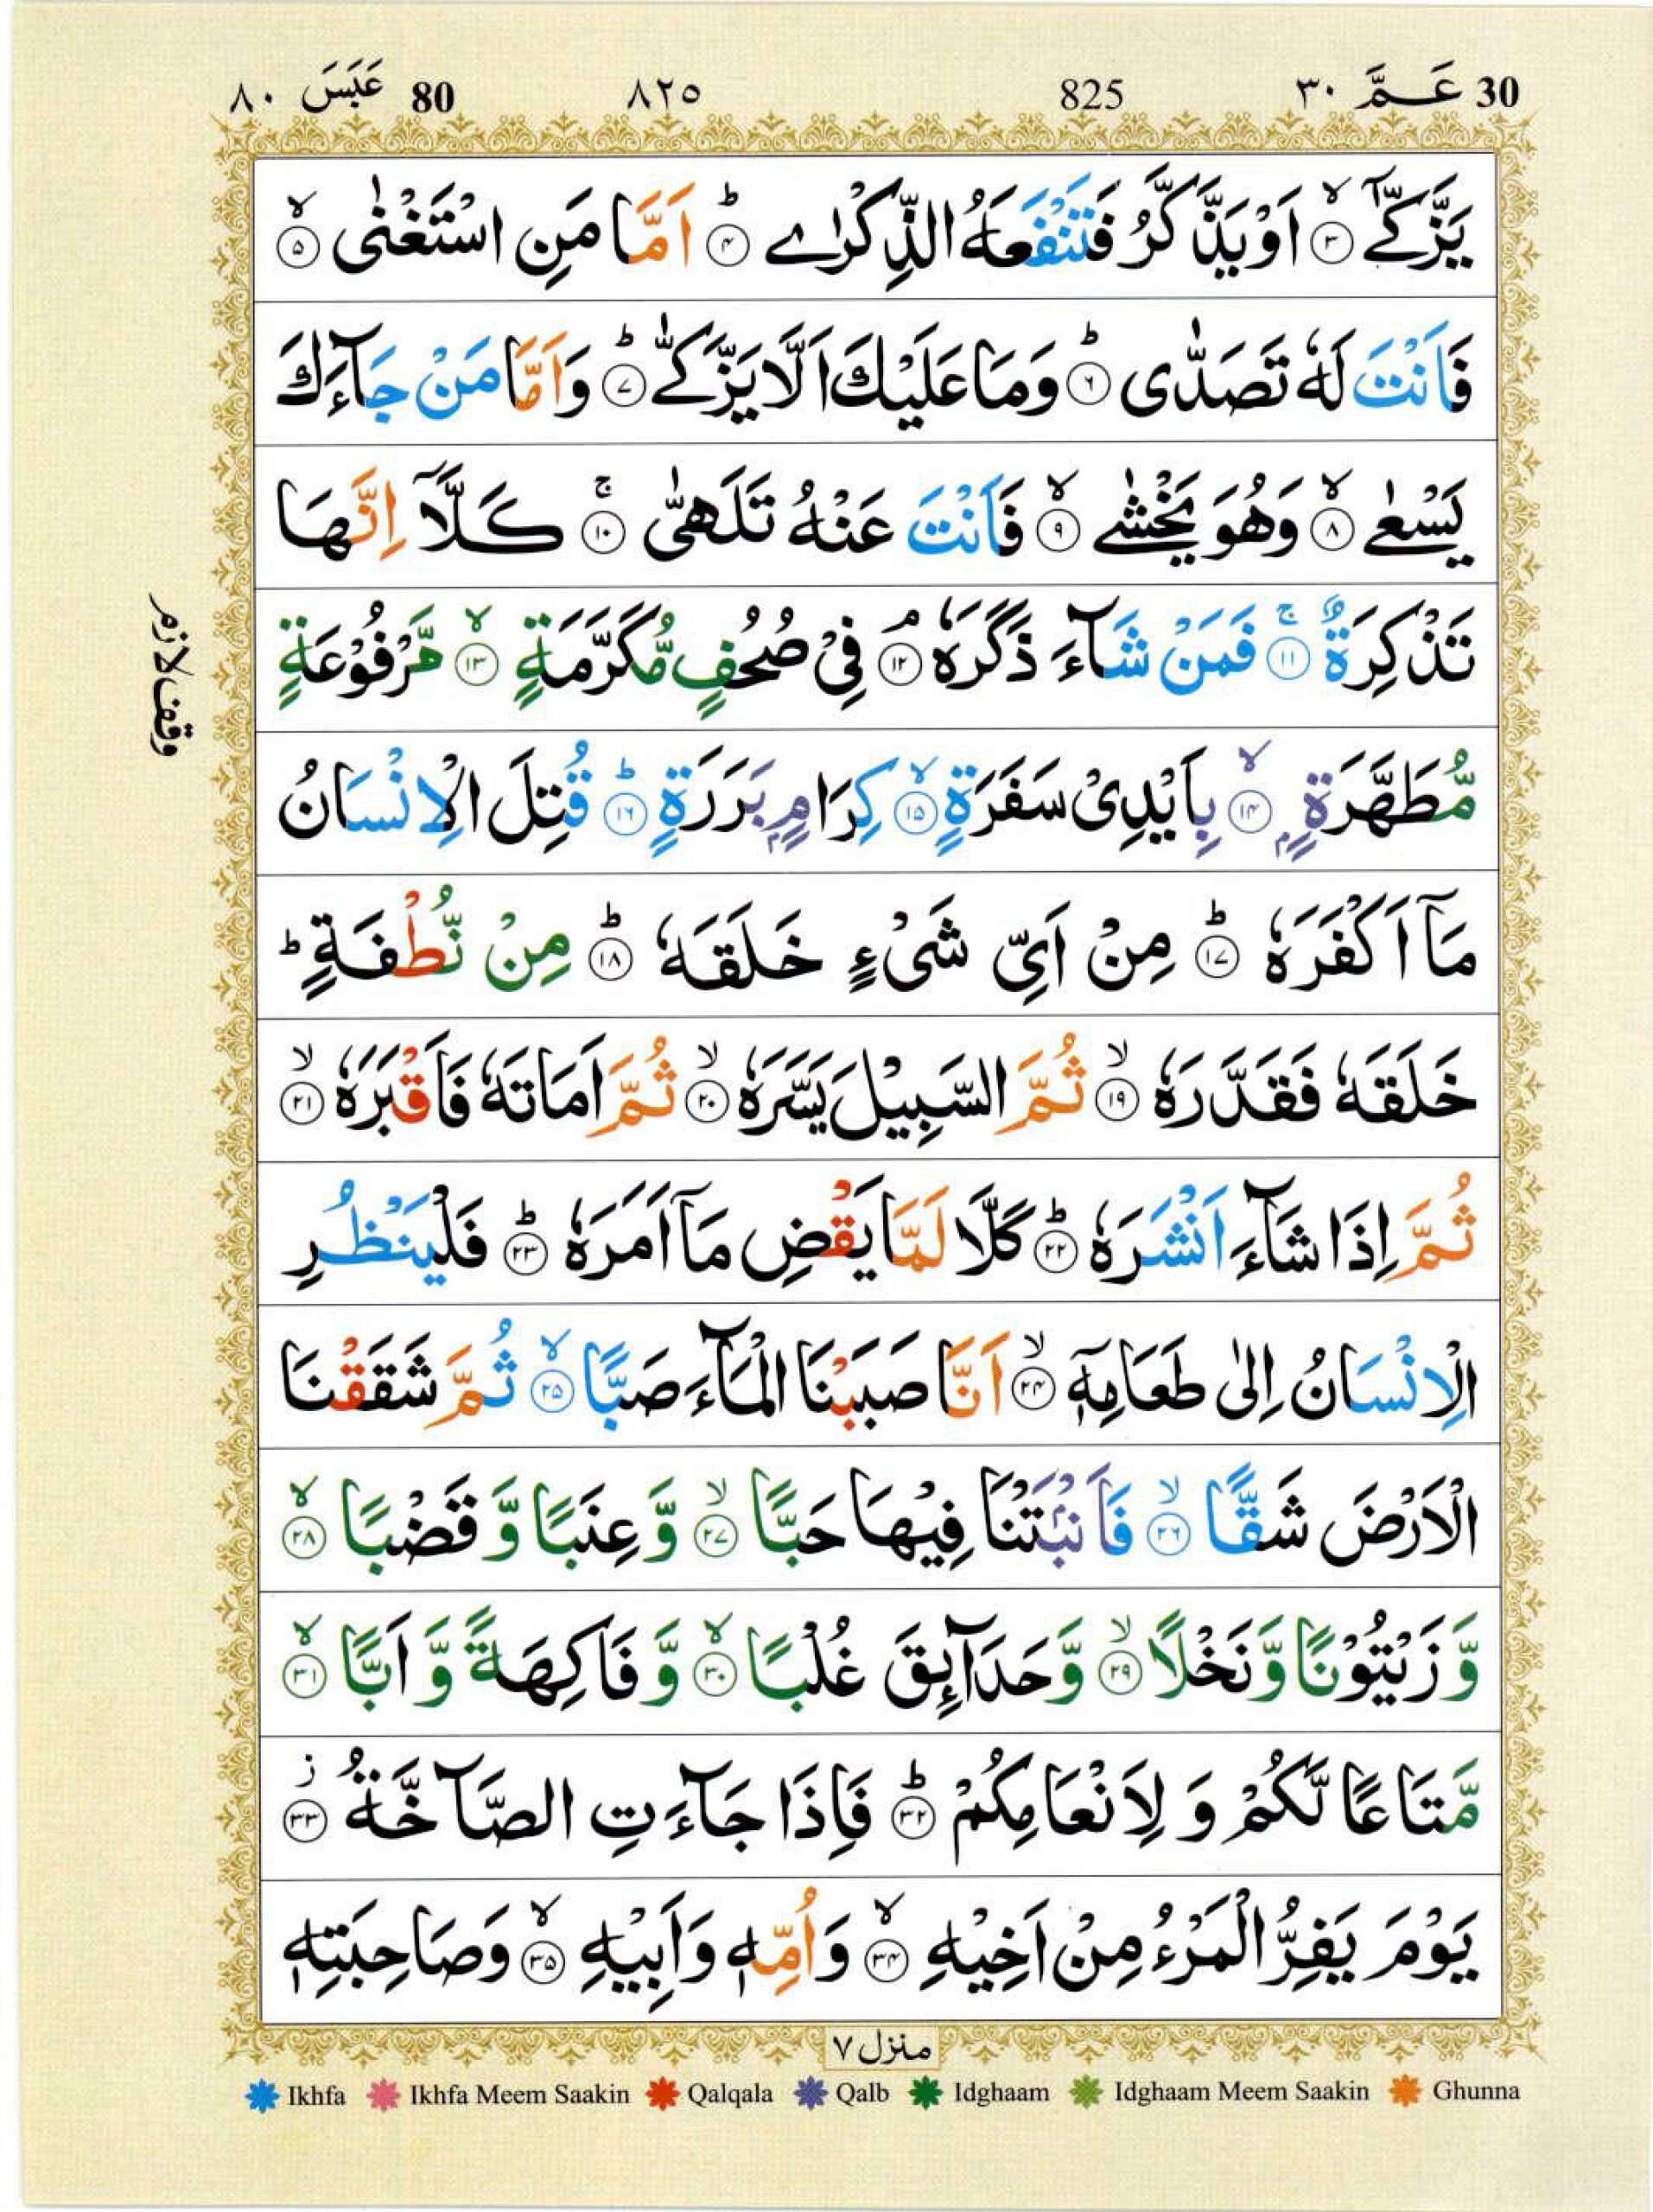 30 عَمَّ ٣٠ 825 ٨٢٥ 80 عَبَسَ ٨٠
يَزَّكّٰٓى ۙ‏﴿۳﴾ اَوْ يَذَّكَّرُ فَتَنْفَعَهُ الذِّكْرٰى ؕ‏﴿۴﴾ اَمَّا مَنِ اسْتَغْنٰى ۙ‏﴿۵﴾
فَاَنْتَ لَهٗ تَصَدّٰى ؕ‏﴿۶﴾ وَمَا عَلَيْكَ اَلَّا يَزَّكّٰى ؕ‏﴿۷﴾ وَاَمَّا مَنْ جَآءَكَ
يَسْعٰى ۙ‏﴿۸﴾ وَهُوَ يَخْشٰى ۙ‏﴿۹﴾ فَاَنْتَ عَنْهُ تَلَهّٰى ۚ‏﴿۱۰﴾ كَلَّاۤ اِنَّهَا
تَذْكِرَةٌ ۚ‏﴿۱۱﴾ فَمَنْ شَآءَ ذَكَرَهٗ ۘ‏﴿۱۲﴾ فِىْ صُحُفٍ مُّكَرَّمَةٍ ۙ‏﴿۱۳﴾ مَّرْفُوْعَةٍ
وقف لازم
مُّطَهَّرَةٍ ۭ ۙ‏﴿۱۴﴾ بِاَيْدِىْ سَفَرَةٍ ۙ‏﴿۱۵﴾ كِرَامٍ ۭ بَرَرَةٍ ؕ‏﴿۱۶﴾ قُتِلَ الْاِنْسَانُ
مَاۤ اَكْفَرَهٗ ؕ‏﴿۱۷﴾ مِنْ اَىِّ شَىْءٍ خَلَقَهٗ ؕ‏﴿۱۸﴾ مِنْ نُّطْفَةٍ ؕ
خَلَقَهٗ فَقَدَّرَهٗ ۙ‏﴿۱۹﴾ ثُمَّ السَّبِيْلَ يَسَّرَهٗ ۙ‏﴿۲۰﴾ ثُمَّ اَمَاتَهٗ فَاَقْبَرَهٗ ۙ‏﴿۲۱﴾
ثُمَّ اِذَا شَآءَ اَنْشَرَهٗ ؕ‏﴿۲۲﴾ كَلَّا لَمَّا يَقْضِ مَاۤ اَمَرَهٗ ؕ‏﴿۲۳﴾ فَلْيَنْظُرِ
الْاِنْسَانُ اِلٰى طَعَامِهٖۤ ۙ‏﴿۲۴﴾ اَنَّا صَبَبْنَا الْمَآءَ صَبًّا ۙ‏﴿۲۵﴾ ثُمَّ شَقَقْنَا
الْاَرْضَ شَقًّا ۙ‏﴿۲۶﴾ فَاَنْۢبَتْنَا فِيْهَا حَبًّا ۙ‏﴿۲۷﴾ وَّعِنَبًا وَّقَضْبًا ۙ‏﴿۲۸﴾
وَّزَيْتُوْنًا وَّنَخْلًا ۙ‏﴿۲۹﴾ وَّحَدَآئِقَ غُلْبًا ۙ‏﴿۳۰﴾ وَّفَاكِهَةً وَّاَبًّا ۙ‏﴿۳۱﴾
مَّتَاعًا لَّكُمْ وَلِاَنْعَامِكُمْ ؕ‏﴿۳۲﴾ فَاِذَا جَآءَتِ الصَّآخَّةُ ۫‏﴿۳۳﴾
يَوْمَ يَفِرُّ الْمَرْءُ مِنْ اَخِيْهِ ۙ‏﴿۳۴﴾ وَاُمِّهٖ وَاَبِيْهِ ۙ‏﴿۳۵﴾ وَصَاحِبَتِهٖ
منزل ٧
Ikhfa Ikhfa Meem Saakin Qalqala Qalb Idghaam Idghaam Meem Saakin Ghunna